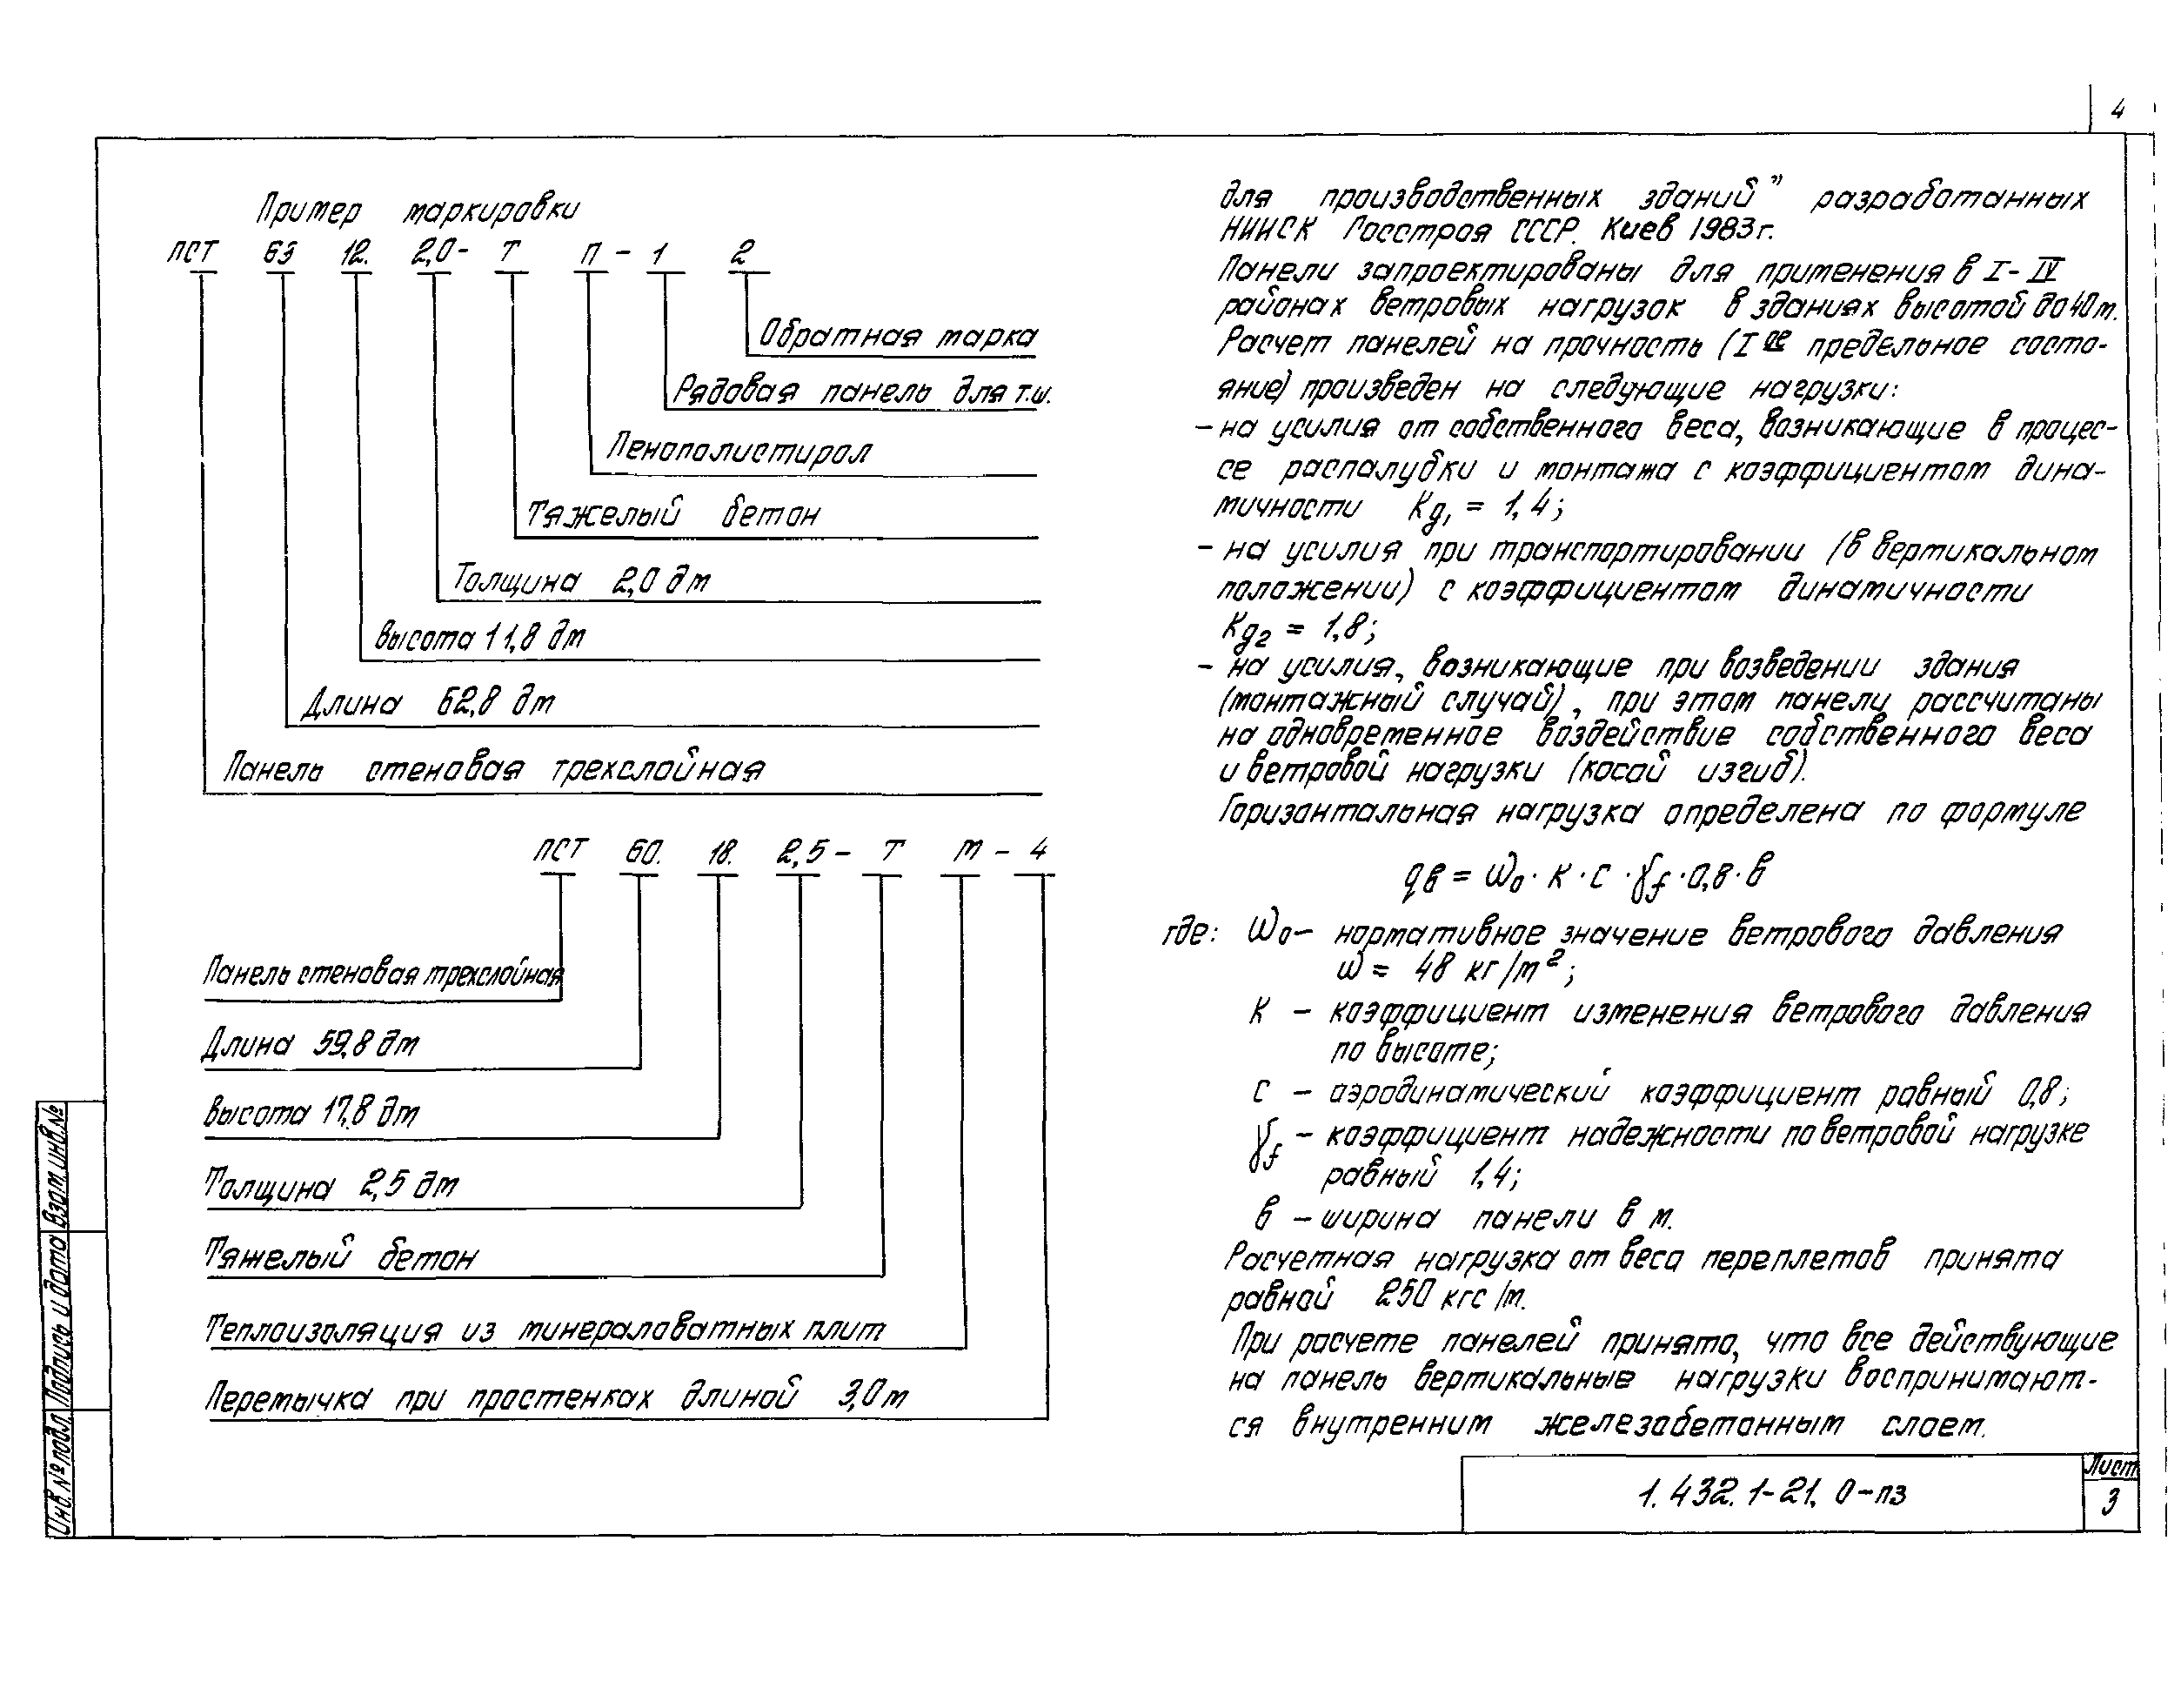 4
Пример маркировки
ПСТ 63 12. 2,0- Т П - 1 2
Обратная марка
Рядовая панель для т.ш.
Пенополистирол
Тяжелый бетон
Толщина 2,0 дм
Высота 11,8 дм
Длина 62,8 дм
Панель стеновая трехслойная
ПСТ 60. 18. 2,5 - Т М - 4
Панель стеновая трехслойная
Длина 59,8 дм
Высота 17,8 дм
Толщина 2,5 дм
Тяжелый бетон
Теплоизоляция из минераловатных плит
Перемычка при простенках длиной 3,0 м
для производственных зданий" разработанных
НИИСК Госстроя СССР. Киев 1983 г.
Панели запроектированы для применения в I - IV
районах ветровых нагрузок в зданиях высотой до 40 м.
Расчет панелей на прочность (I ое предельное состо-
яние) произведен на следующие нагрузки:
- на усилия от собственного веса, возникающие в процес-
се распалубки и монтажа с коэффициентом дина-
мичности Kд1 = 1,4;
- на усилия при транспортировании (в вертикальном
положении) с коэффициентом динамичности
Kд2 = 1,8;
- на усилия, возникающие при возведении здания
(монтажный случай), при этом панели рассчитаны
на одновременное воздействие собственного веса
и ветровой нагрузки (косой изгиб).
Горизонтальная нагрузка определена по формуле
qв = ω₀ · К · С · γf · 0,8 · в
где: ω₀ - нормативное значение ветрового давления
ω = 48 кг/м²;
К - коэффициент изменения ветрового давления
по высоте;
С - аэродинамический коэффициент равный 0,8;
γf - коэффициент надежности по ветровой нагрузке
равный 1,4;
в - ширина панели в м.
Расчетная нагрузка от веса переплетов принята
равной 250 кгс/м.
При расчете панелей принято, что все действующие
на панель вертикальные нагрузки воспринимают-
ся внутренним железобетонным слоем.
Инв. № подл. Подпись и дата Взам. инв. №
1. 432. 1-21. 0-ПЗ
Лист
3